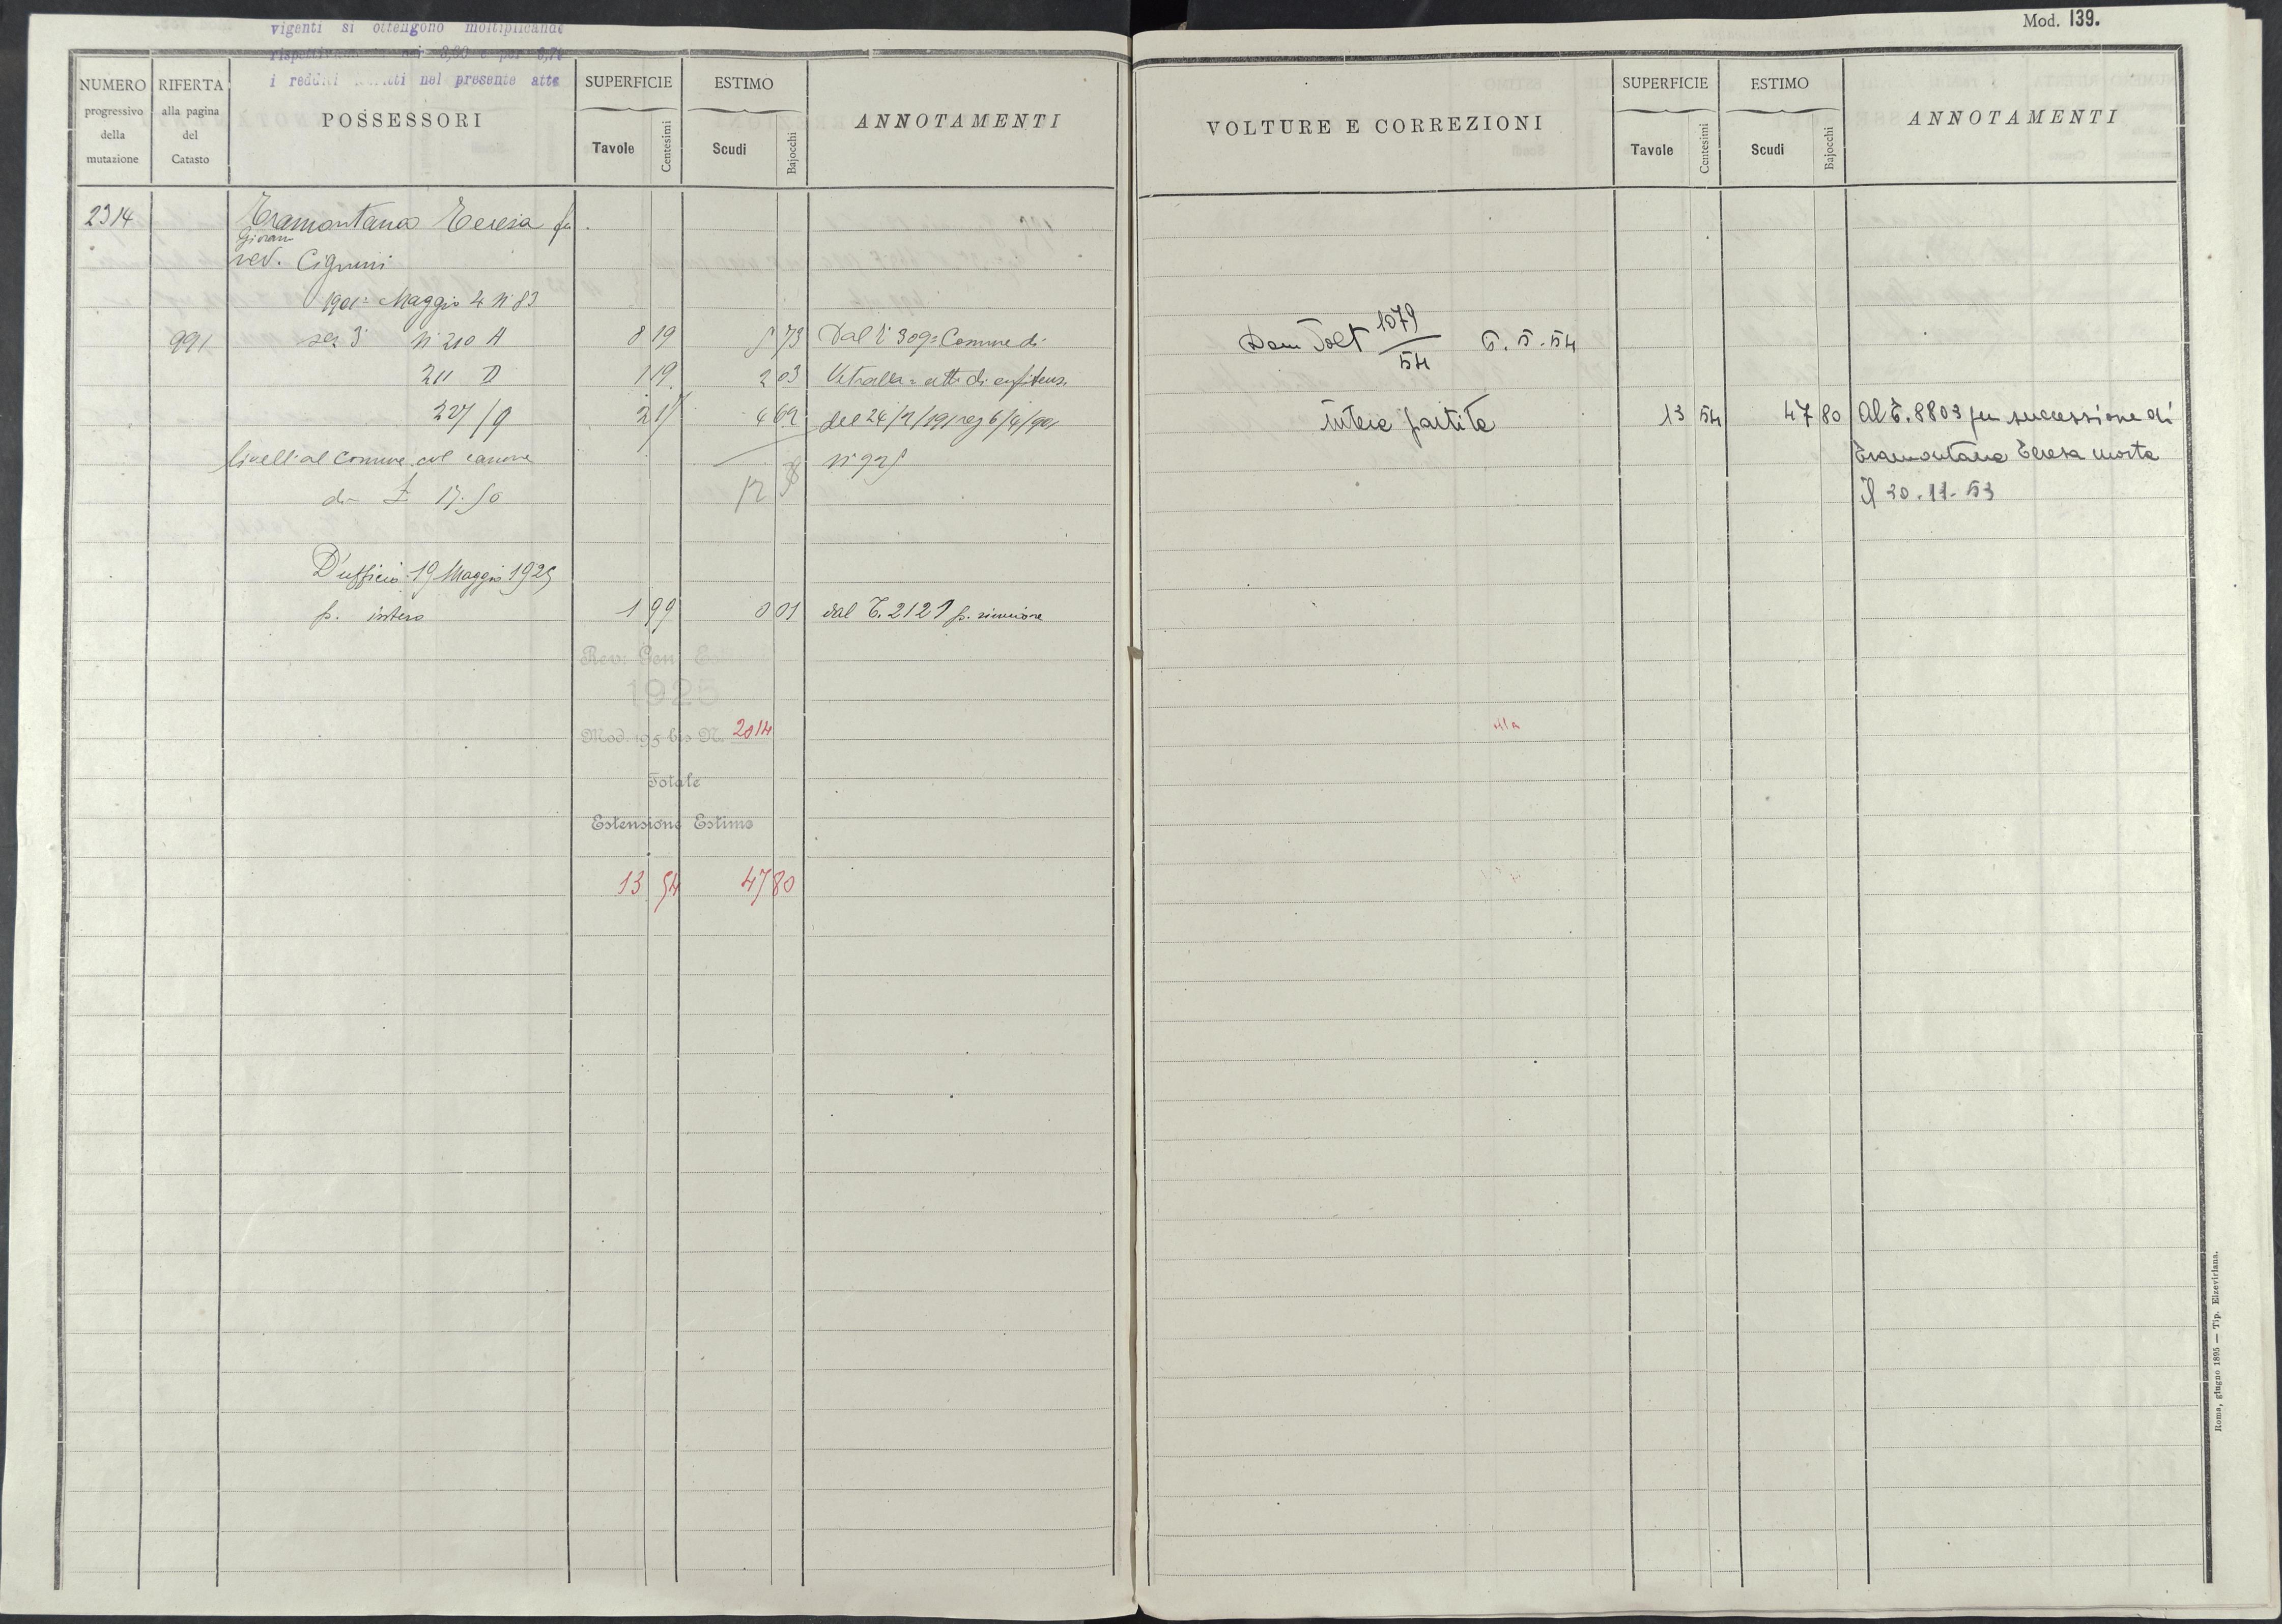 vigenti si ottengono moltiplicando
i redditi nel presente atto
NUMERO progressivo della mutazione
RIFERTA alla pagina del Catasto
POSSESSORI
SUPERFICIE
Tavole Centesimi
ESTIMO
Scudi Bajocchi
ANNOTAMENTI
2314 Tramontana Teresa fu
Giovanni
ved. Cignini
1901 = Maggio 4 N° 83
991 sez 3ª N° 210 A 8 19 5 73 Dal T° 309 = Comune di
211 D 1 19 2 03 Vetralla = atto di enfiteusi
227/9 2 17 4 62 del 24/2/191 reg 6/4/901
livell. al Comune col canone N° 925
di £ 17.50 12 38
D'ufficio 19 Maggio 1925
p. intero 1 99 0 01 dal T. 2121 p. riunione
Rev: Gen:
1925
Mod. 195 bis N. 2014
Totale
Estensione Estimo
13 54 47 80
Mod. 139.
VOLTURE E CORREZIONI
SUPERFICIE
Tavole Centesimi
ESTIMO
Scudi Bajocchi
ANNOTAMENTI
Dom Volt 1079/54 5.5.54
Intera partita 13 54 47 80 Al T. 8803 per successione di
Tramontana Teresa morta
il 20.11.53
Roma, giugno 1895 — Tip. Elzeviriana.